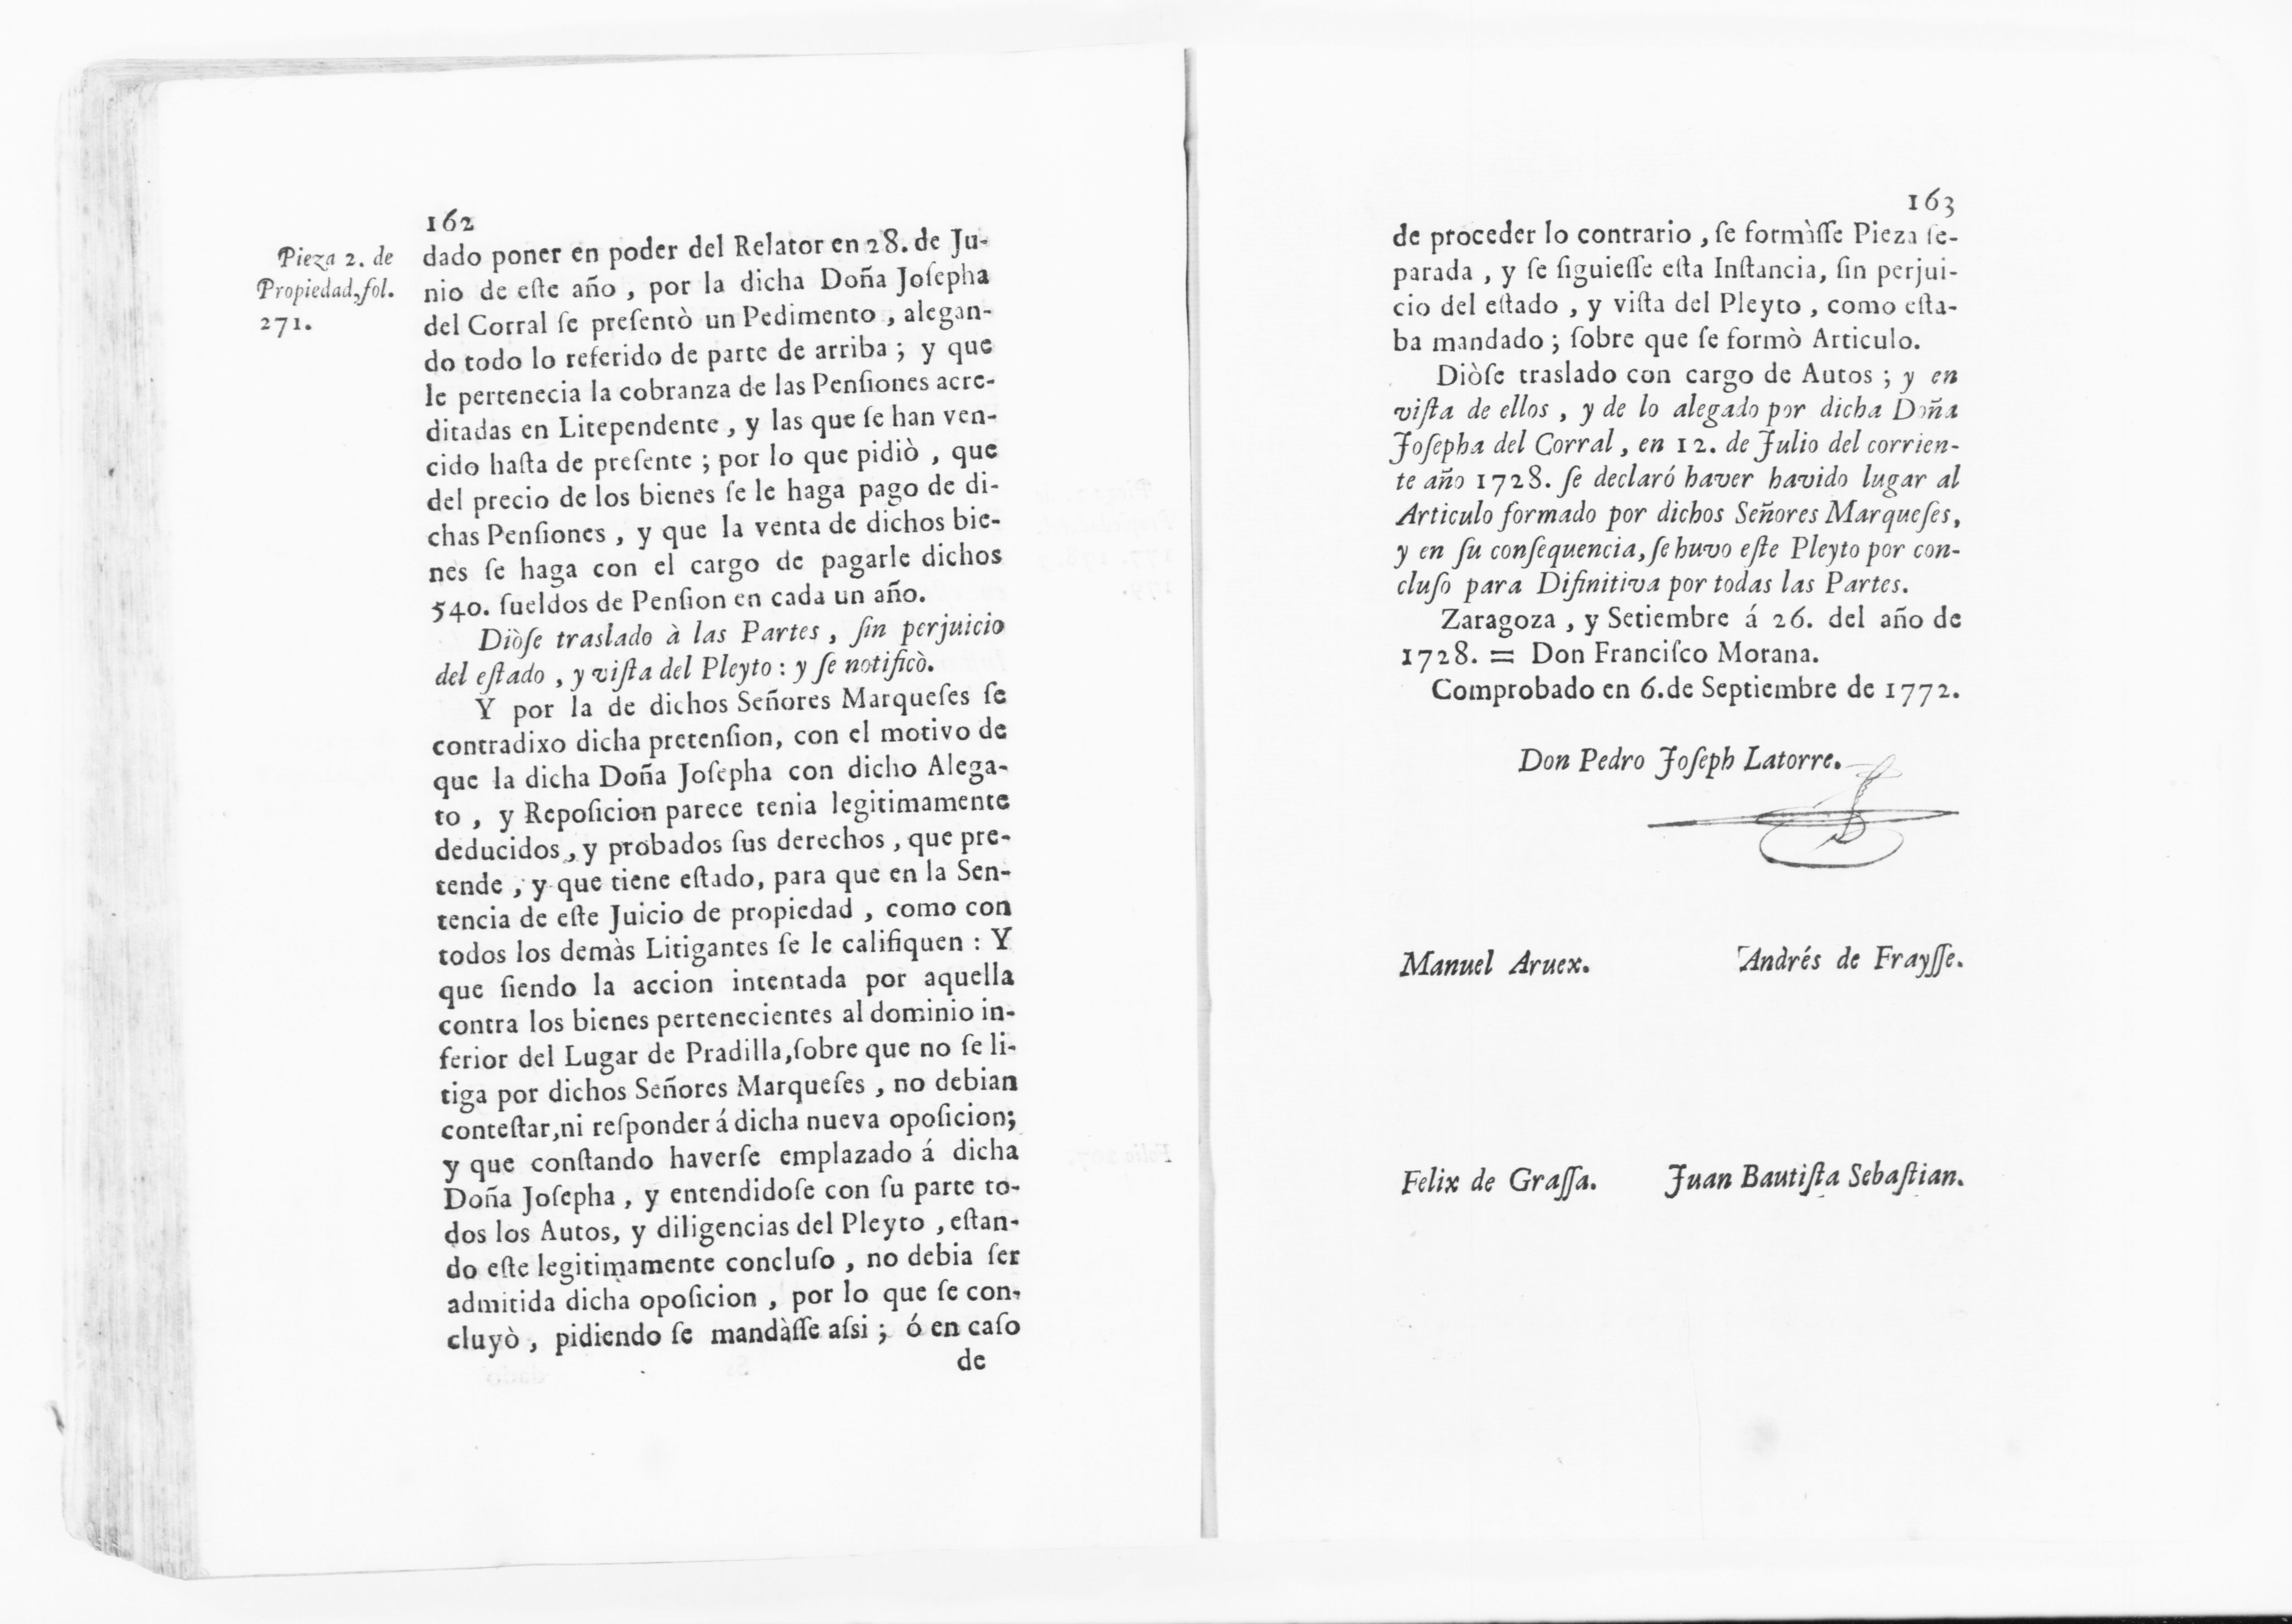 162
Pieza 2. de
Propiedad, fol.
271.
dado poner en poder del Relator en 28. de Ju-
nio de eſte año , por la dicha Doña Joſepha
del Corral ſe preſentò un Pedimento , alegan-
do todo lo referido de parte de arriba ; y que
le pertenecia la cobranza de las Penſiones acre-
ditadas en Litependente , y las que ſe han ven-
cido haſta de preſente ; por lo que pidiò , que
del precio de los bienes ſe le haga pago de di-
chas Penſiones , y que la venta de dichos bie-
nes ſe haga con el cargo de pagarle dichos
540. ſueldos de Penſion en cada un año.
Diòſe traslado à las Partes , ſin perjuicio
del eſtado , y viſta del Pleyto : y ſe notificò.
Y por la de dichos Señores Marqueſes ſe
contradixo dicha pretenſion, con el motivo de
que la dicha Doña Joſepha con dicho Alega-
to , y Repoſicion parece tenia legitimamente
deducidos , y probados ſus derechos , que pre-
tende , y que tiene eſtado, para que en la Sen-
tencia de eſte Juicio de propiedad , como con
todos los demàs Litigantes ſe le califiquen : Y
que ſiendo la accion intentada por aquella
contra los bienes pertenecientes al dominio in-
ferior del Lugar de Pradilla,ſobre que no ſe li-
tiga por dichos Señores Marqueſes , no debian
conteſtar,ni reſponder á dicha nueva opoſicion;
y que conſtando haverſe emplazado á dicha
Doña Joſepha , y entendidoſe con ſu parte to-
dos los Autos, y diligencias del Pleyto , eſtan-
do eſte legitimamente concluſo , no debia ſer
admitida dicha opoſicion , por lo que ſe con-
cluyò , pidiendo ſe mandàſſe aſsi ; ó en caſo
de
163
de proceder lo contrario , ſe formàſſe Pieza ſe-
parada , y ſe ſiguieſſe eſta Inſtancia, ſin perjui-
cio del eſtado , y viſta del Pleyto , como eſta-
ba mandado ; ſobre que ſe formò Articulo.
Diòſe traslado con cargo de Autos ; y en
viſta de ellos , y de lo alegado por dicha Doña
Joſepha del Corral , en 12. de Julio del corrien-
te año 1728. ſe declaró haver havido lugar al
Articulo formado por dichos Señores Marqueſes,
y en ſu conſequencia, ſe huvo eſte Pleyto por con-
cluſo para Difinitiva por todas las Partes.
Zaragoza , y Setiembre á 26. del año de
1728. = Don Franciſco Morana.
Comprobado en 6.de Septiembre de 1772.
Don Pedro Joſeph Latorre.
Manuel Aruex. Andrés de Frayſſe.
Felix de Graſſa. Juan Bautiſta Sebaſtian.